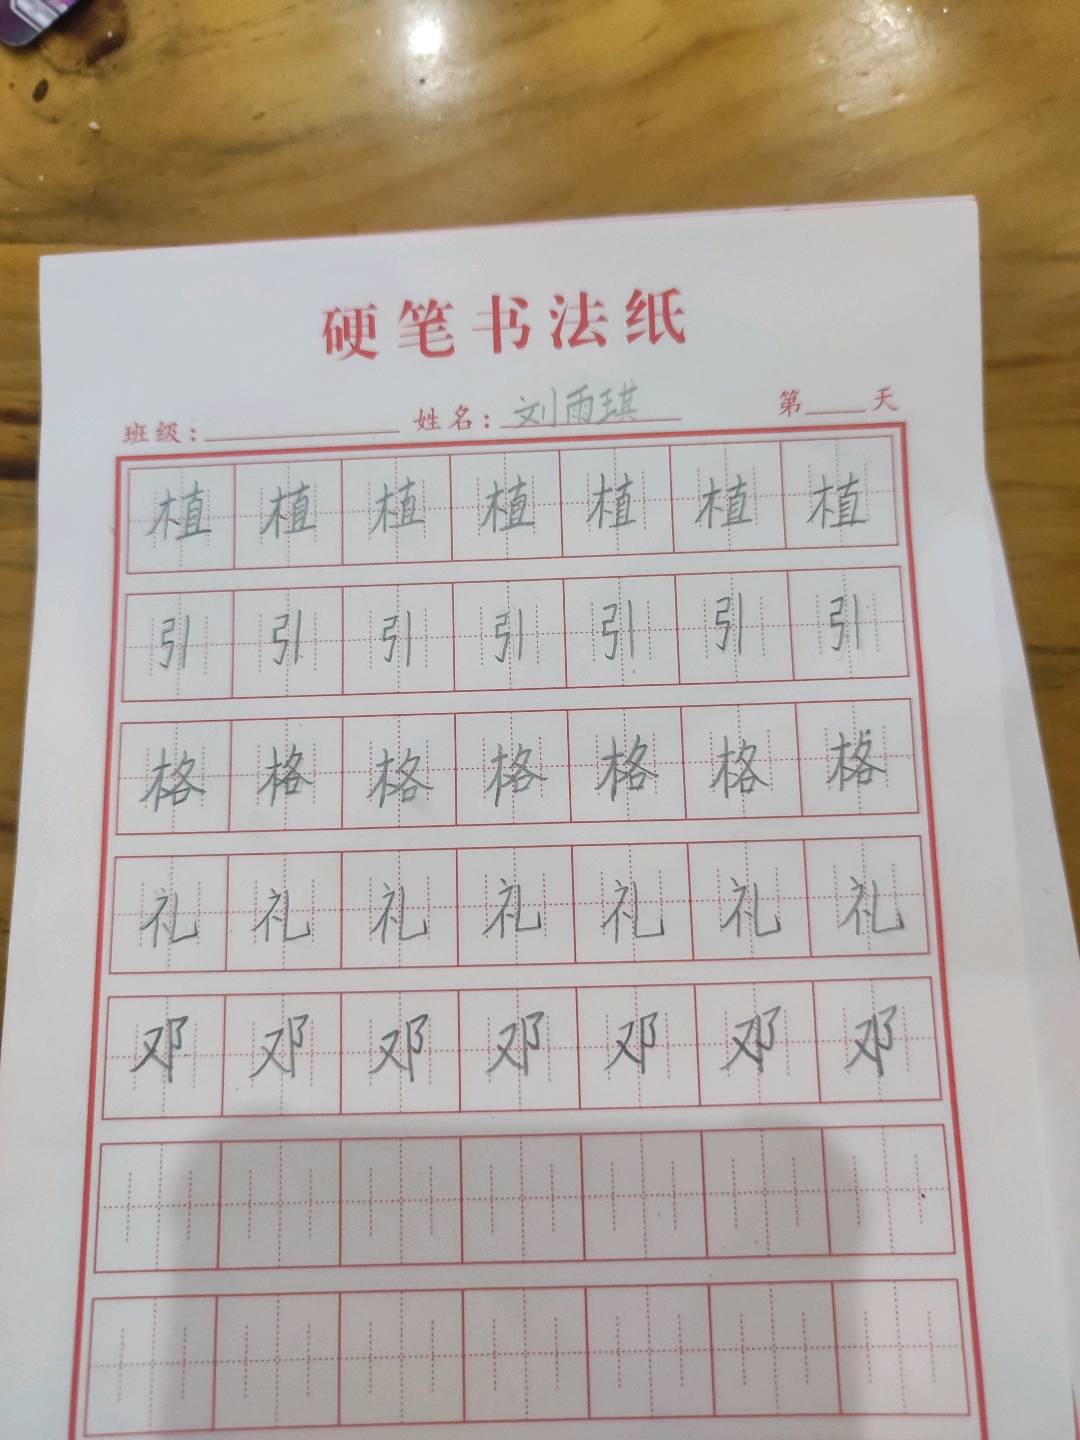 硬笔书法纸
班级： 姓名：刘雨琪 第 天
植 植 植 植 植 植 植
引 引 引 引 引 引 引
格 格 格 格 格 格 格
礼 礼 礼 礼 礼 礼 礼
邓 邓 邓 邓 邓 邓 邓